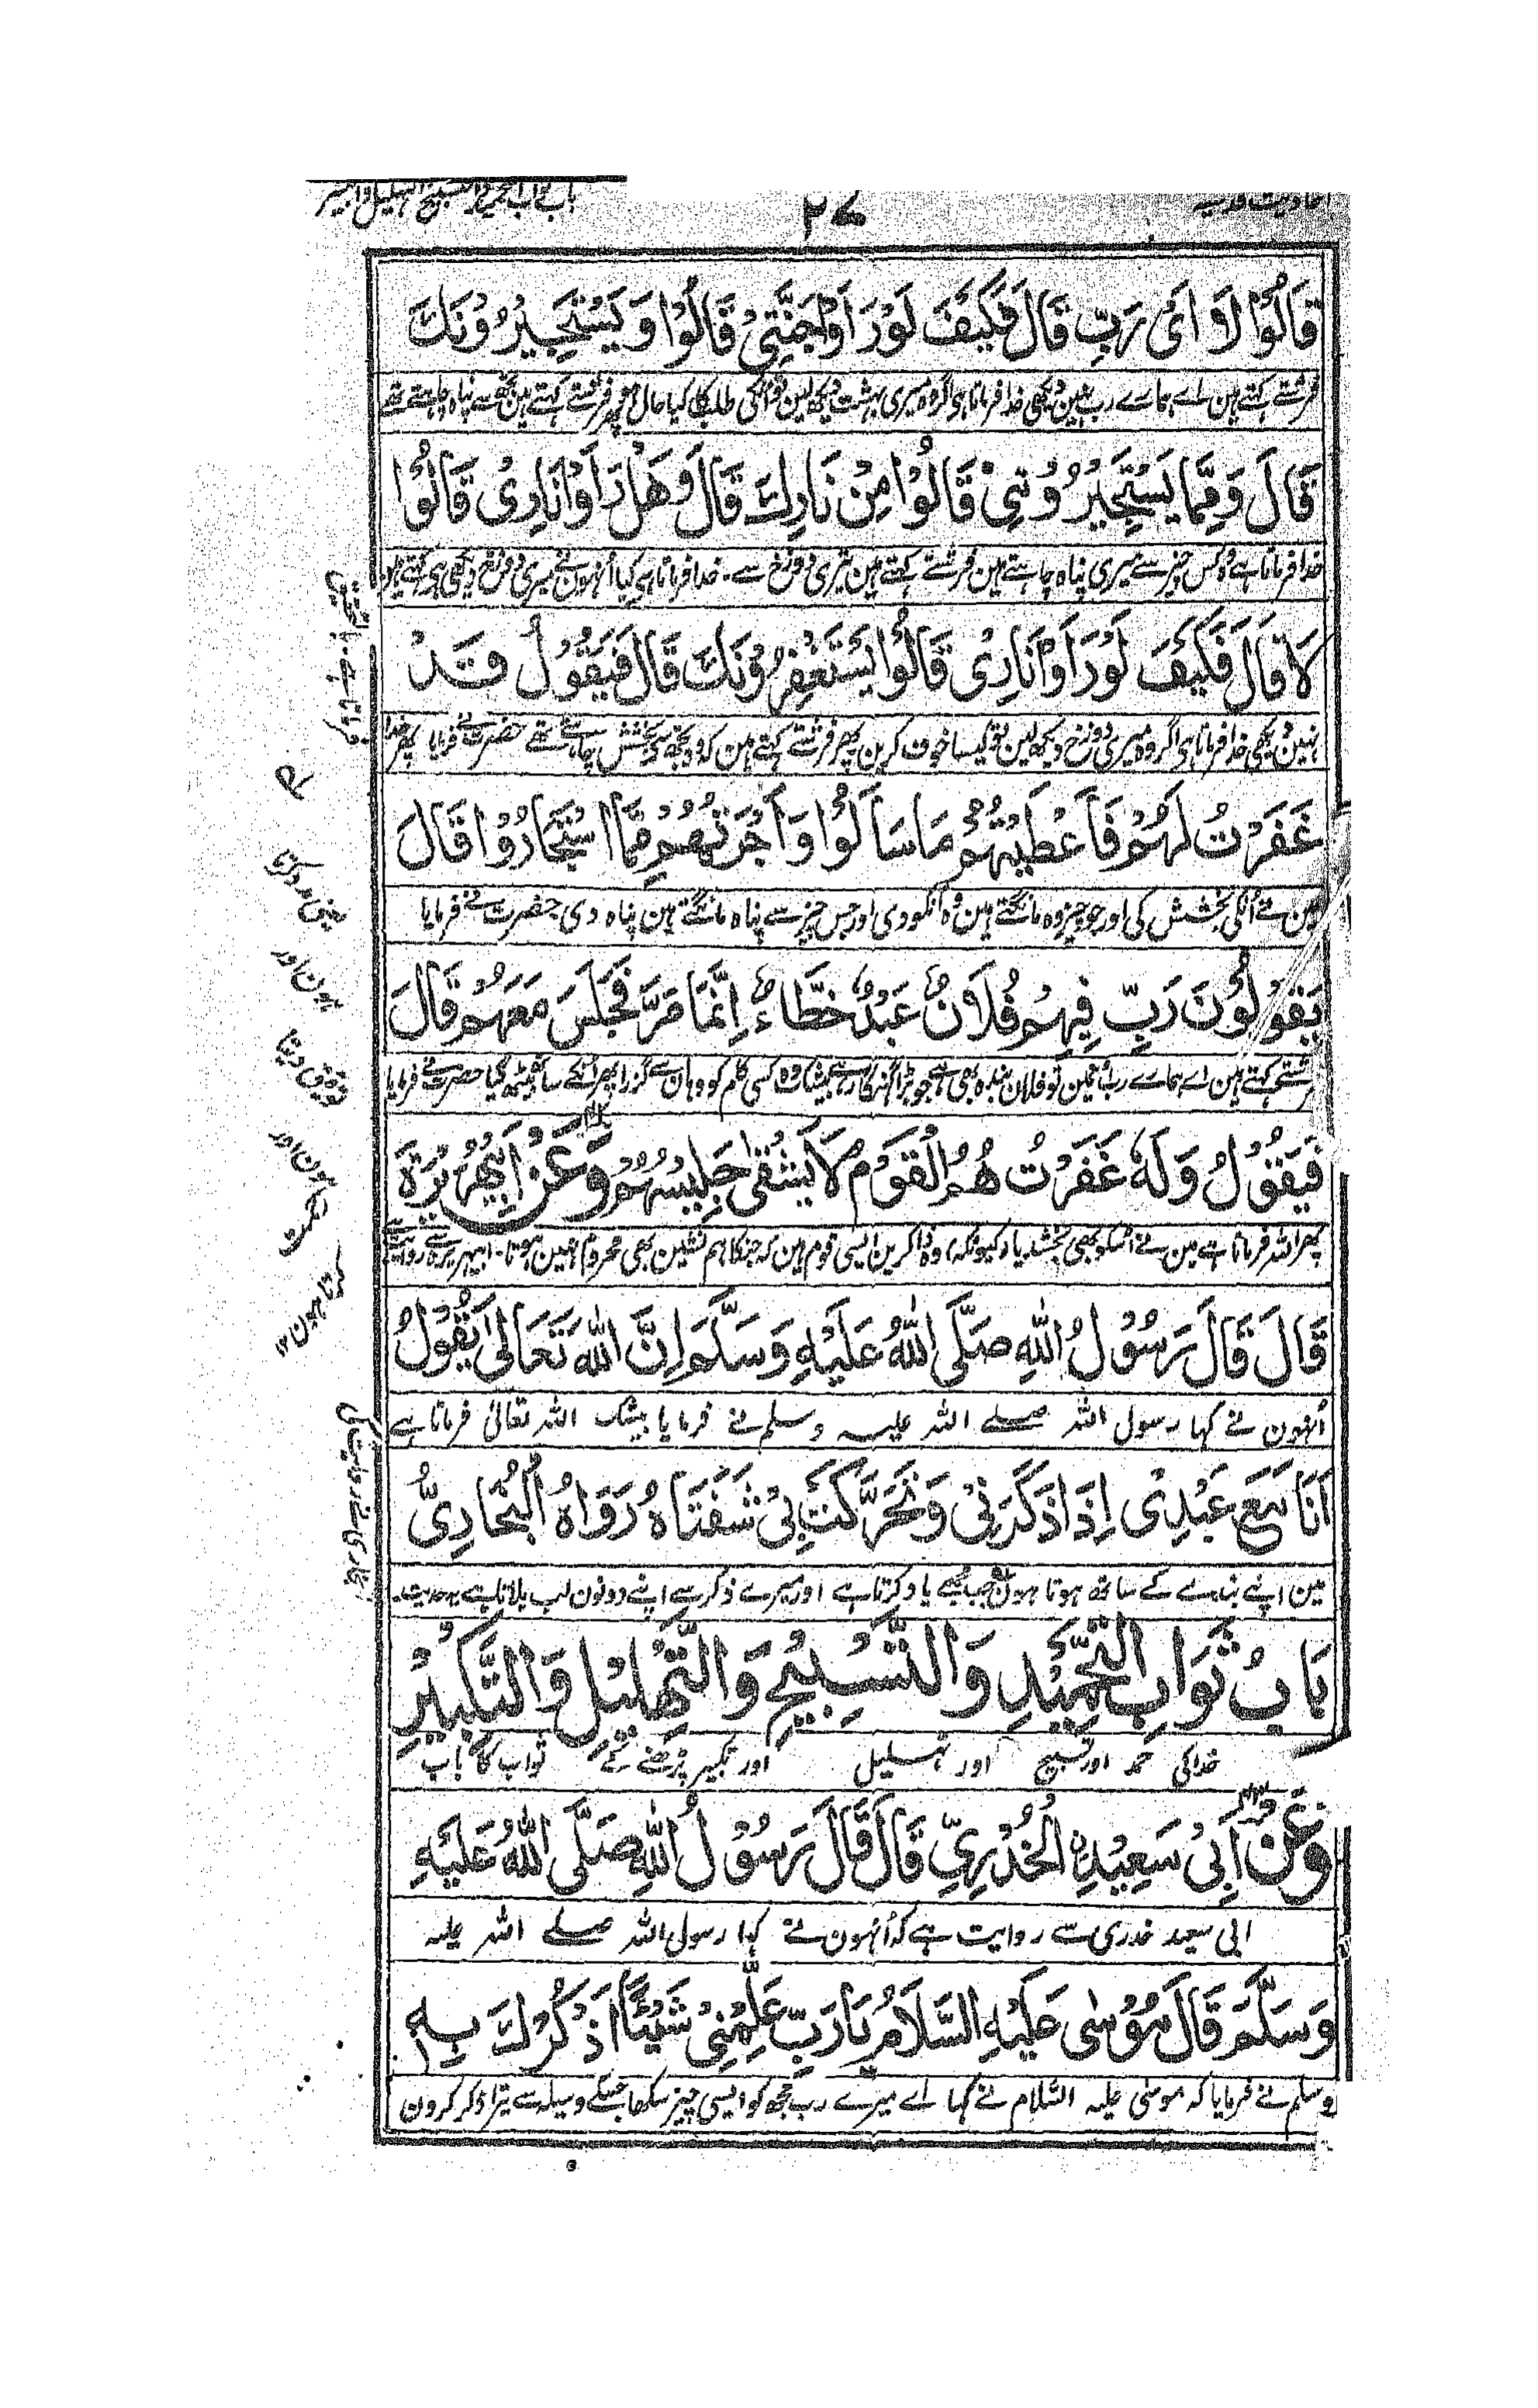 احادیث قدسیہ
۲۷
باب ثواب التحمید والتسبیح والتہلیل والتکبیر
قَالُوْا لَا اَیْ رَبِّ قَالَ فَكَیْفَ لَوْ رَاَوْا جَنَّتِیْ قَالُوْا وَیَسْتَجِیْرُوْنَكَ
فرشتے کہتے ہین اے ہمارے رب نہین دیکھی خدا فرماتا ہی اگر وہ میری بہشت دیکھ لین تو انکی طلب کا کیا حال ہو پھر فرشتے کہتے ہین تجھ سے پناہ چاہتے تھے
قَالَ وَمِمَّا یَسْتَجِیْرُوْنِیْ قَالُوْا مِنْ نَارِكَ قَالَ وَهَلْ رَاَوْا نَارِیْ قَالُوْا
خدا فرماتا ہے وہ کس چیز سے میری پناہ چاہتے ہین فرشتے کہتے ہین تیری دوزخ سے۔ خدا فرماتا ہی کیا اُنہون نے میری دوزخ دیکھی ہی کہتے ہین
لَا قَالَ فَكَیْفَ لَوْ رَاَوْا نَارِیْ قَالُوْا یَسْتَغْفِرُوْنَكَ قَالَ فَیَقُوْلُ قَدْ
نہین دیکھی خدا فرماتا ہی اگر وہ میری دوزخ دیکھ لین تو کیسا خوف کرین پھر فرشتے کہتے ہین کہ وہ تجھ سے بخشش چاہتے تھے حضرت نے فرمایا پھر خدا
غَفَرْتُ لَهُمْ فَاَعْطَیْتُهُمْ مَا سَاَلُوْا وَاَجَرْتُهُمْ مِمَّا اسْتَجَارُوْا قَالَ
مین نے اُنکی بخشش کی اور جو چیز وہ مانگتے ہین وہ انکو دی اور جس چیز سے پناہ مانگتے ہین پناہ دی حضرت نے فرمایا
یَقُوْلُوْنَ رَبِّ فِیْهِمْ فُلَانٌ عَبْدٌ خَطَّاءٌ اِنَّمَا مَرَّ فَجَلَسَ مَعَهُمْ قَالَ
فرشتے کہتے ہین اے ہمارے رب انمین تو فلان بندہ بھی ہے جو بڑا گنہگار ہے بیشک وہ کسی کام کو وہان سے گزرا پھر انکے ساتھ بیٹھ گیا حضرت نے فرمایا
فَیَقُوْلُ وَلَهٗ غَفَرْتُ هُمُ الْقَوْمُ لَا یَشْقٰی جَلِیْسُهُمْ وَعَنْ اَبِیْ هُرَیْرَةَ
پھر اللہ فرماتا ہے مین نے اسکو بھی بخشدیا (کیونکہ) وہ ذاکرین ایسی قوم ہین کہ جنکا ہم نشین بھی محروم نہین ہوتا۔ ابی ہریرہ سے روایت ہے
قَالَ قَالَ رَسُوْلُ اللّٰهِ صَلَّی اللّٰهُ عَلَیْهِ وَسَلَّمَ اِنَّ اللّٰهَ تَعَالٰی یَقُوْلُ
اُنہون نے کہا رسول اللہ صلے اللہ علیہ وسلم نے فرمایا بیشک اللہ تعالیٰ فرماتا ہے
اَنَا مَعَ عَبْدِیْ اِذَا ذَكَرَنِیْ وَتَحَرَّكَتْ بِیْ شَفَتَاهُ رَوَاهُ الْبُخَارِیُّ
مین اپنے بندے کے ساتھ ہوتا ہون جب مجھے یاد کرتا ہے اور میرے ذکر سے اپنے دونون لب ہلاتا ہے یہ حدیث
بَابُ ثَوَابِ التَّحْمِیْدِ وَالتَّسْبِیْحِ وَالتَّهْلِیْلِ وَالتَّكْبِیْرِ
خدا کی حمد اور تسبیح اور تہلیل اور تکبیر پڑھنے کے ثواب کا باب
وَعَنْ اَبِیْ سَعِیْدِنِ الْخُدْرِیِّ قَالَ قَالَ رَسُوْلُ اللّٰهِ صَلَّی اللّٰهُ عَلَیْهِ
ابی سعید خدری سے روایت ہے کہ اُنہون نے کہا رسول اللہ صلے اللہ علیہ
وَسَلَّمَ قَالَ مُوْسٰی عَلَیْهِ السَّلَامُ یَا رَبِّ عَلِّمْنِیْ شَیْئًا اَذْكُرُكَ بِهٖ
وسلم نے فرمایا کہ موسیٰ علیہ السّلام نے کہا اے میرے رب مجھ کو ایسی چیز سکھا جسکے وسیلہ سے تیرا ذکر کرون
یعنی مدد کرتا
ہون اور
توفیق دیتا
ہون اور
رحمت
کرتا ہون ۱۲